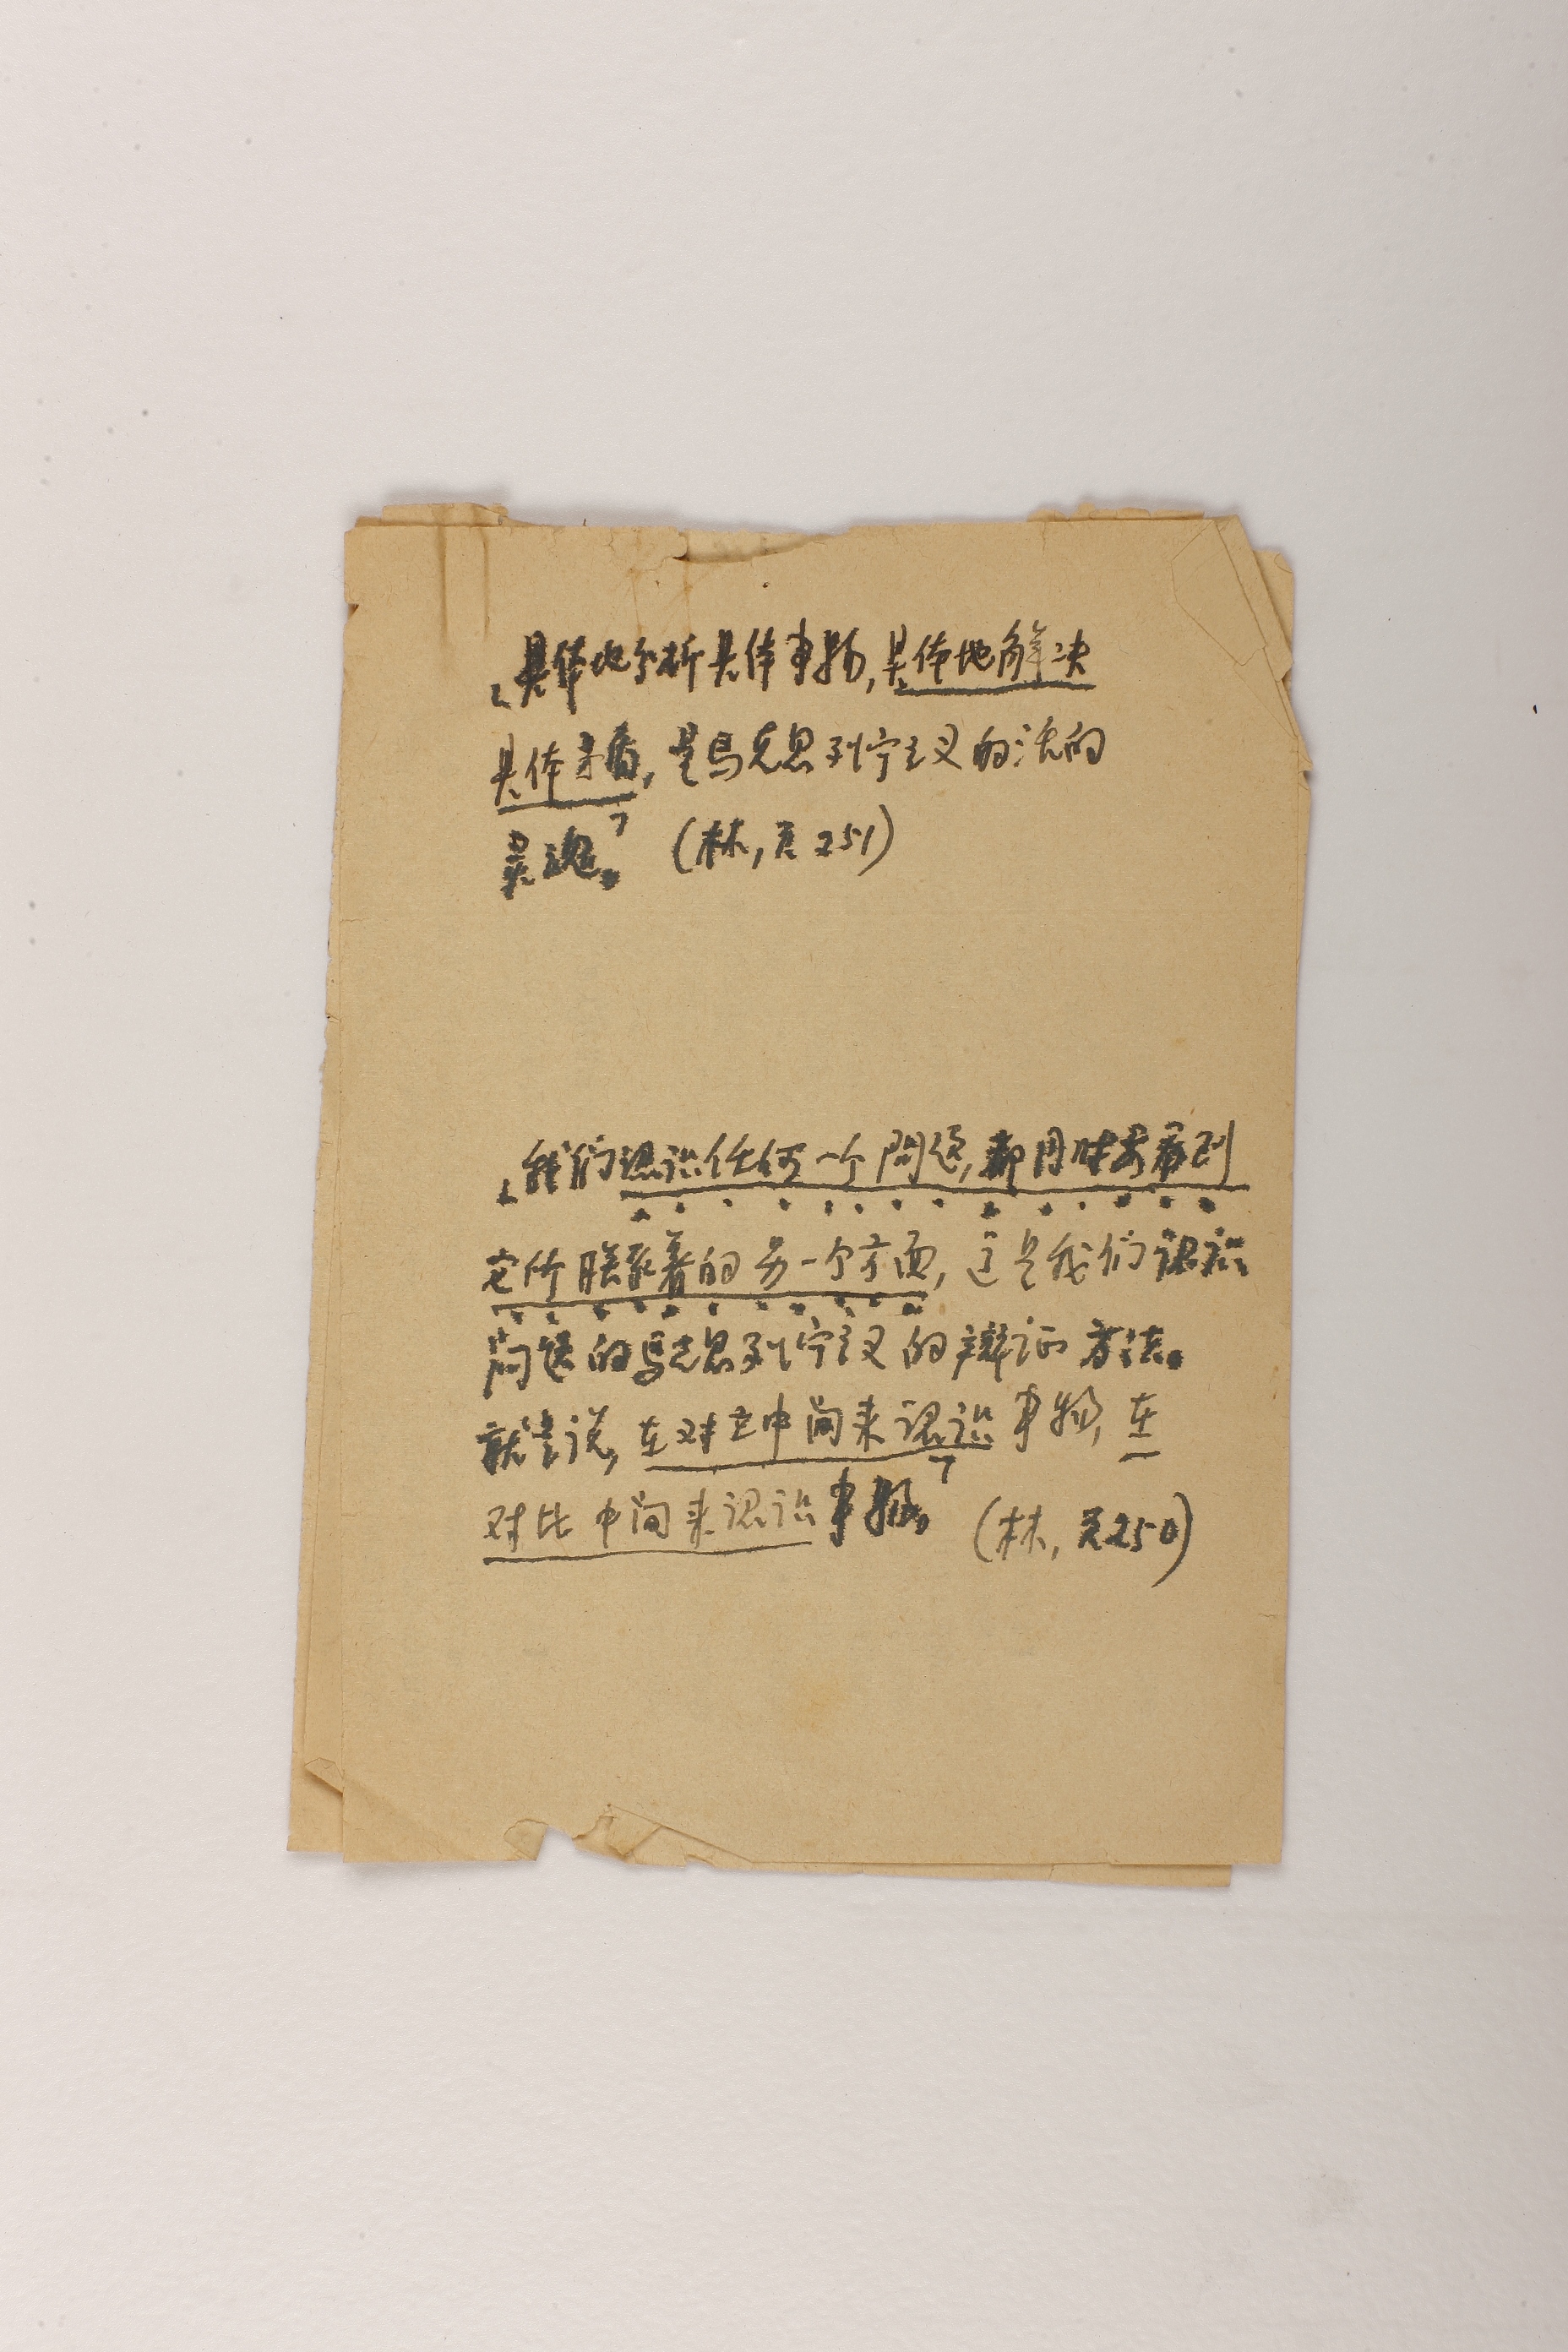 「具体地分析具体事物,具体地解决
具体矛盾,是马克思列宁主义的活的
灵魂。」(林,页251)
「我们認識任何一个問題,都同时要看到
它所联系着的另一个方面,这是我们認識
問題的马克思列宁主义的辯证方法。
就是说,在对立中間来認識事物,在
对比中間来認識事物。」(林,页250)